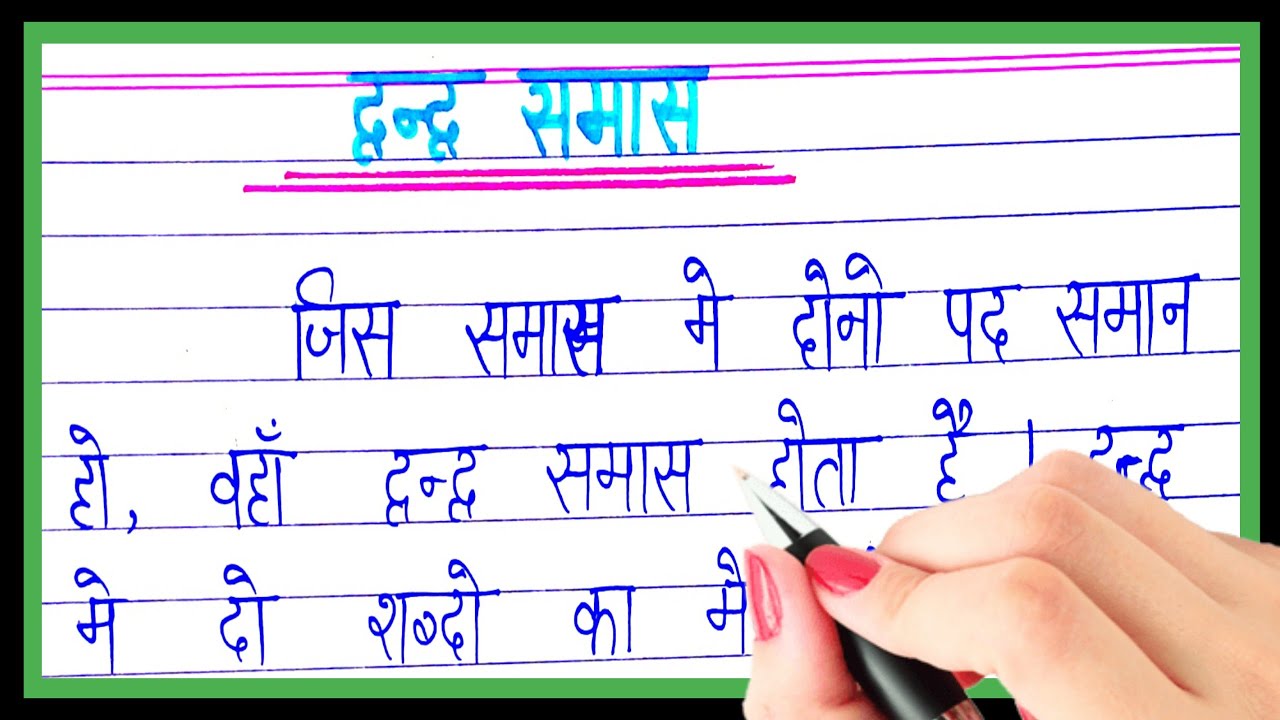 द्वन्द्व समास
जिस समास मे दोनो पद समान
हो, वहाँ द्वन्द्व समास होता है । द्वन्द्व
मे दो शब्दो का